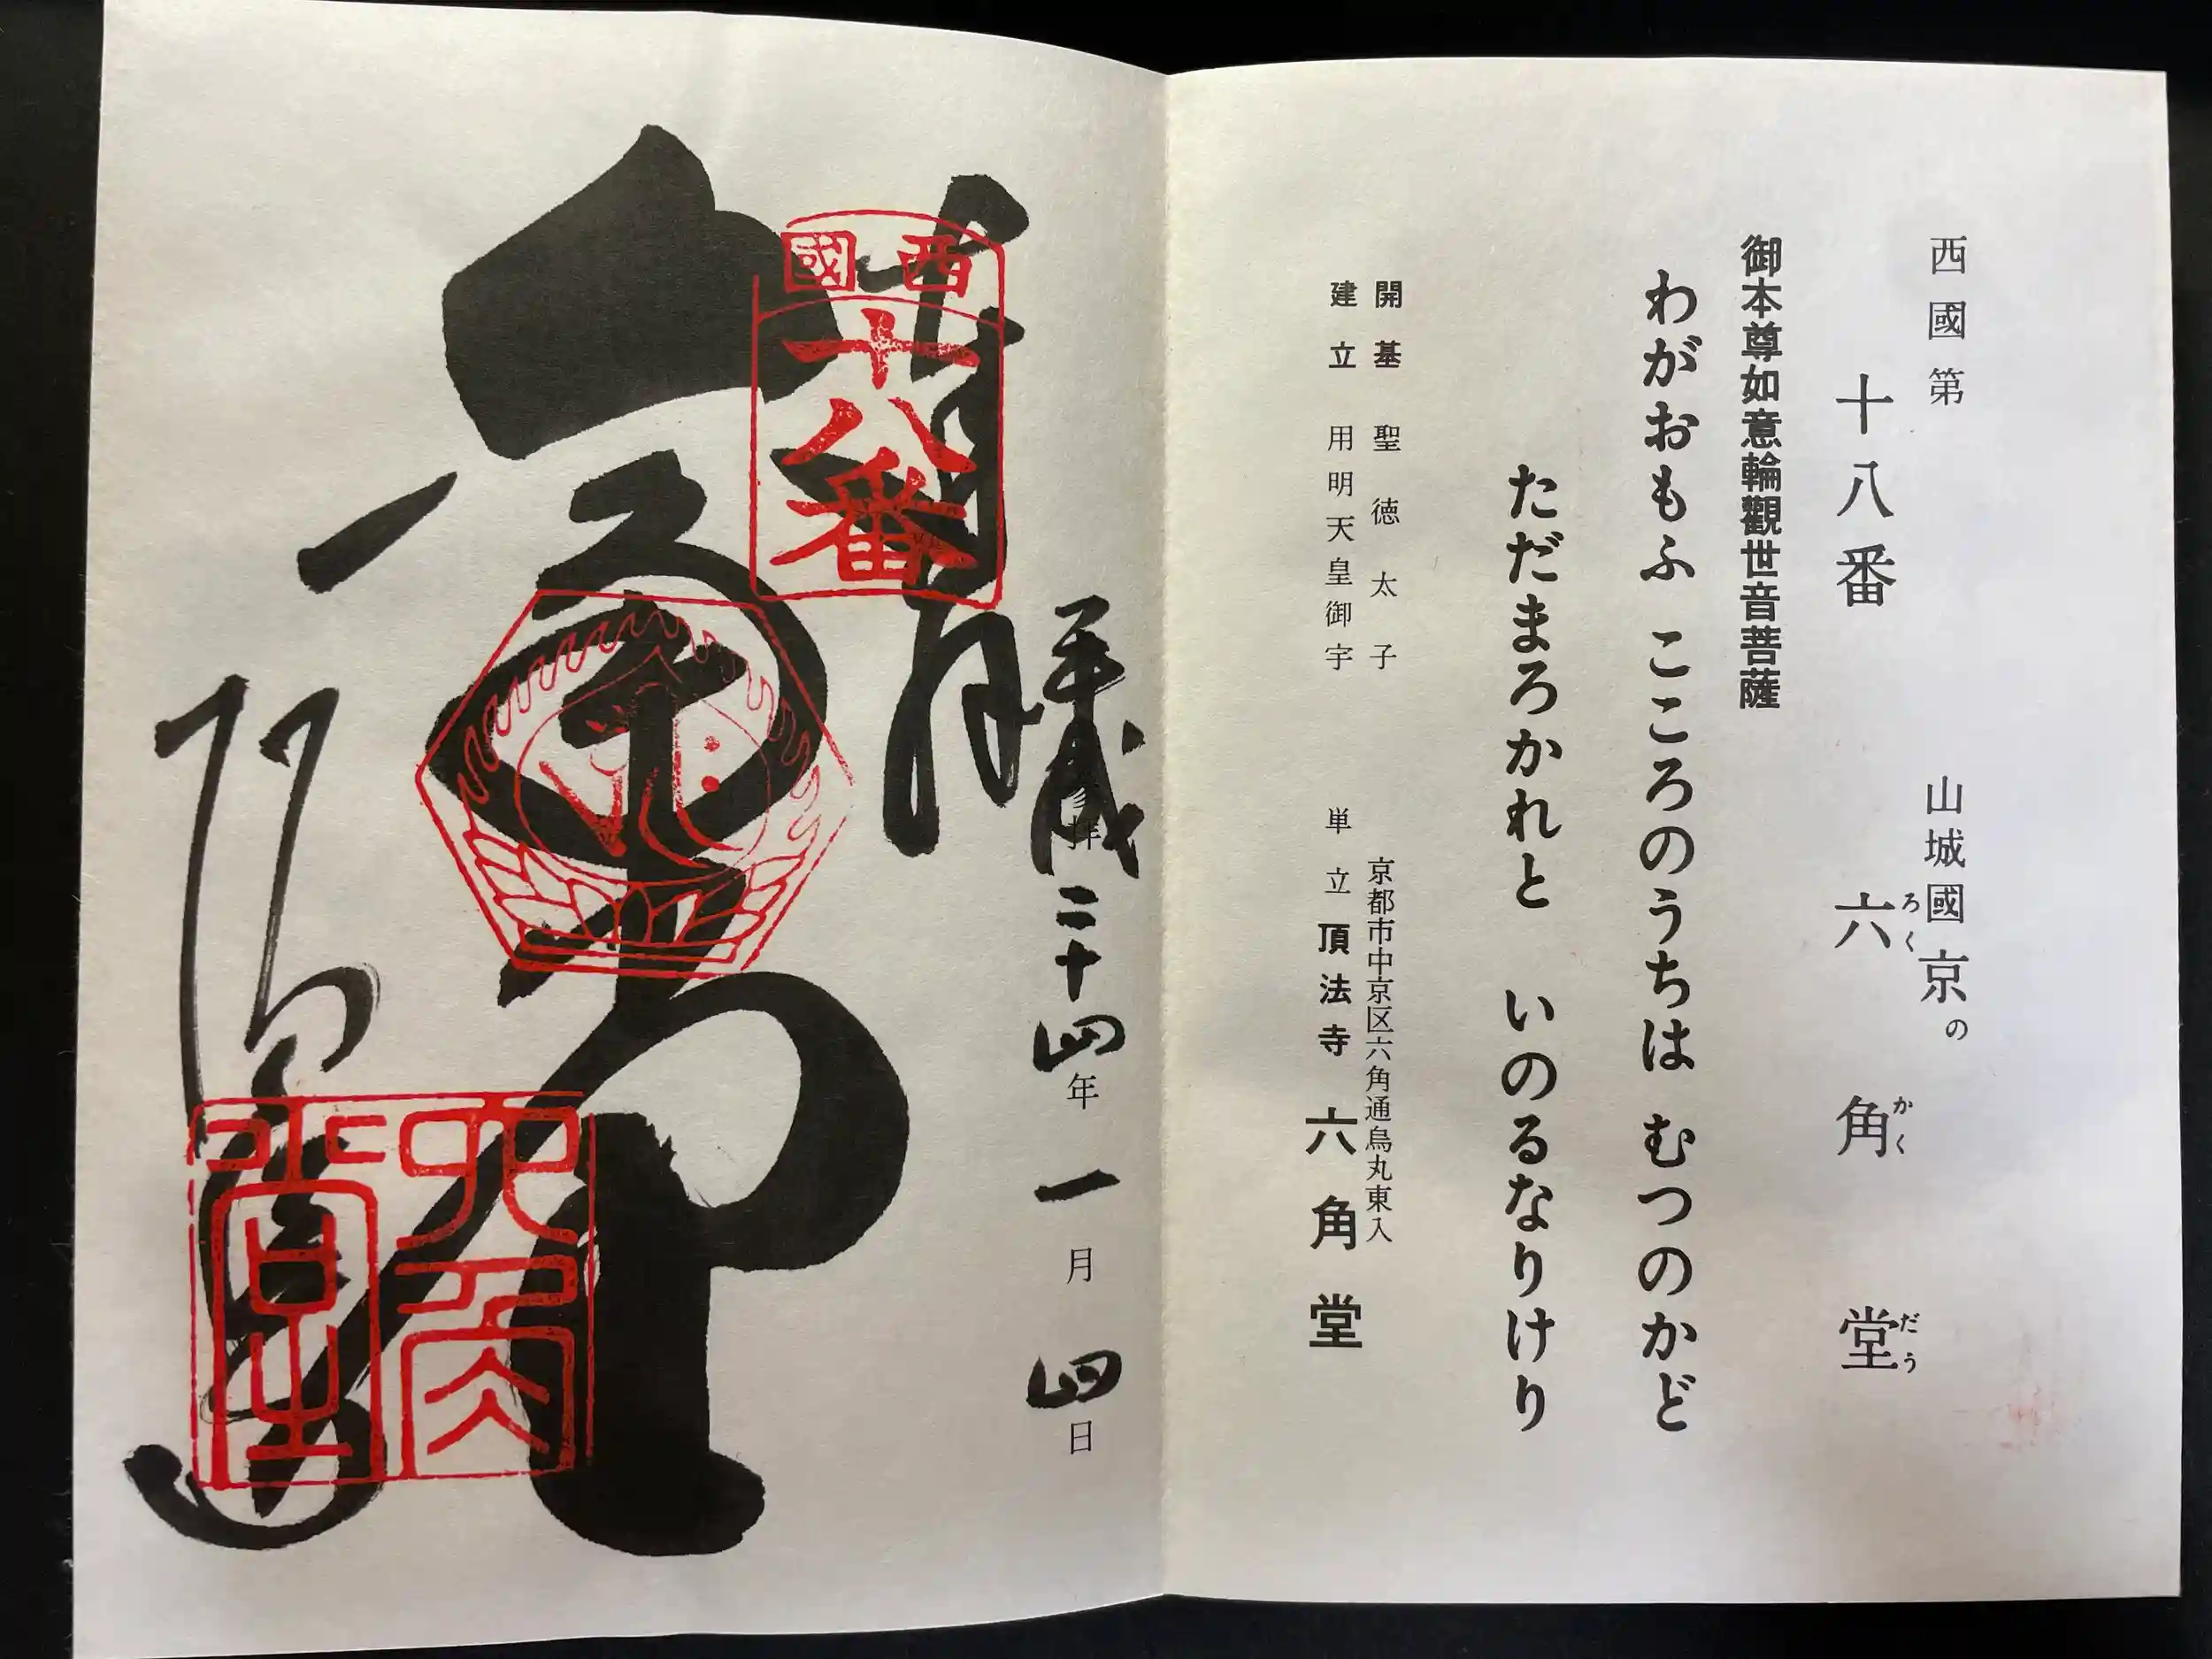 西國第 山城國京の
十八番 六角堂
ろくかくだう
御本尊如意輪觀世音菩薩
わがおもふ こころのうちは むつのかど
ただまろかれと いのるなりけり
開基 聖徳太子
建立 用明天皇御宇
京都市中京区六角通烏丸東入
単立 頂法寺 六角堂
平成二十四年一月四日
西國
十八番
六角堂